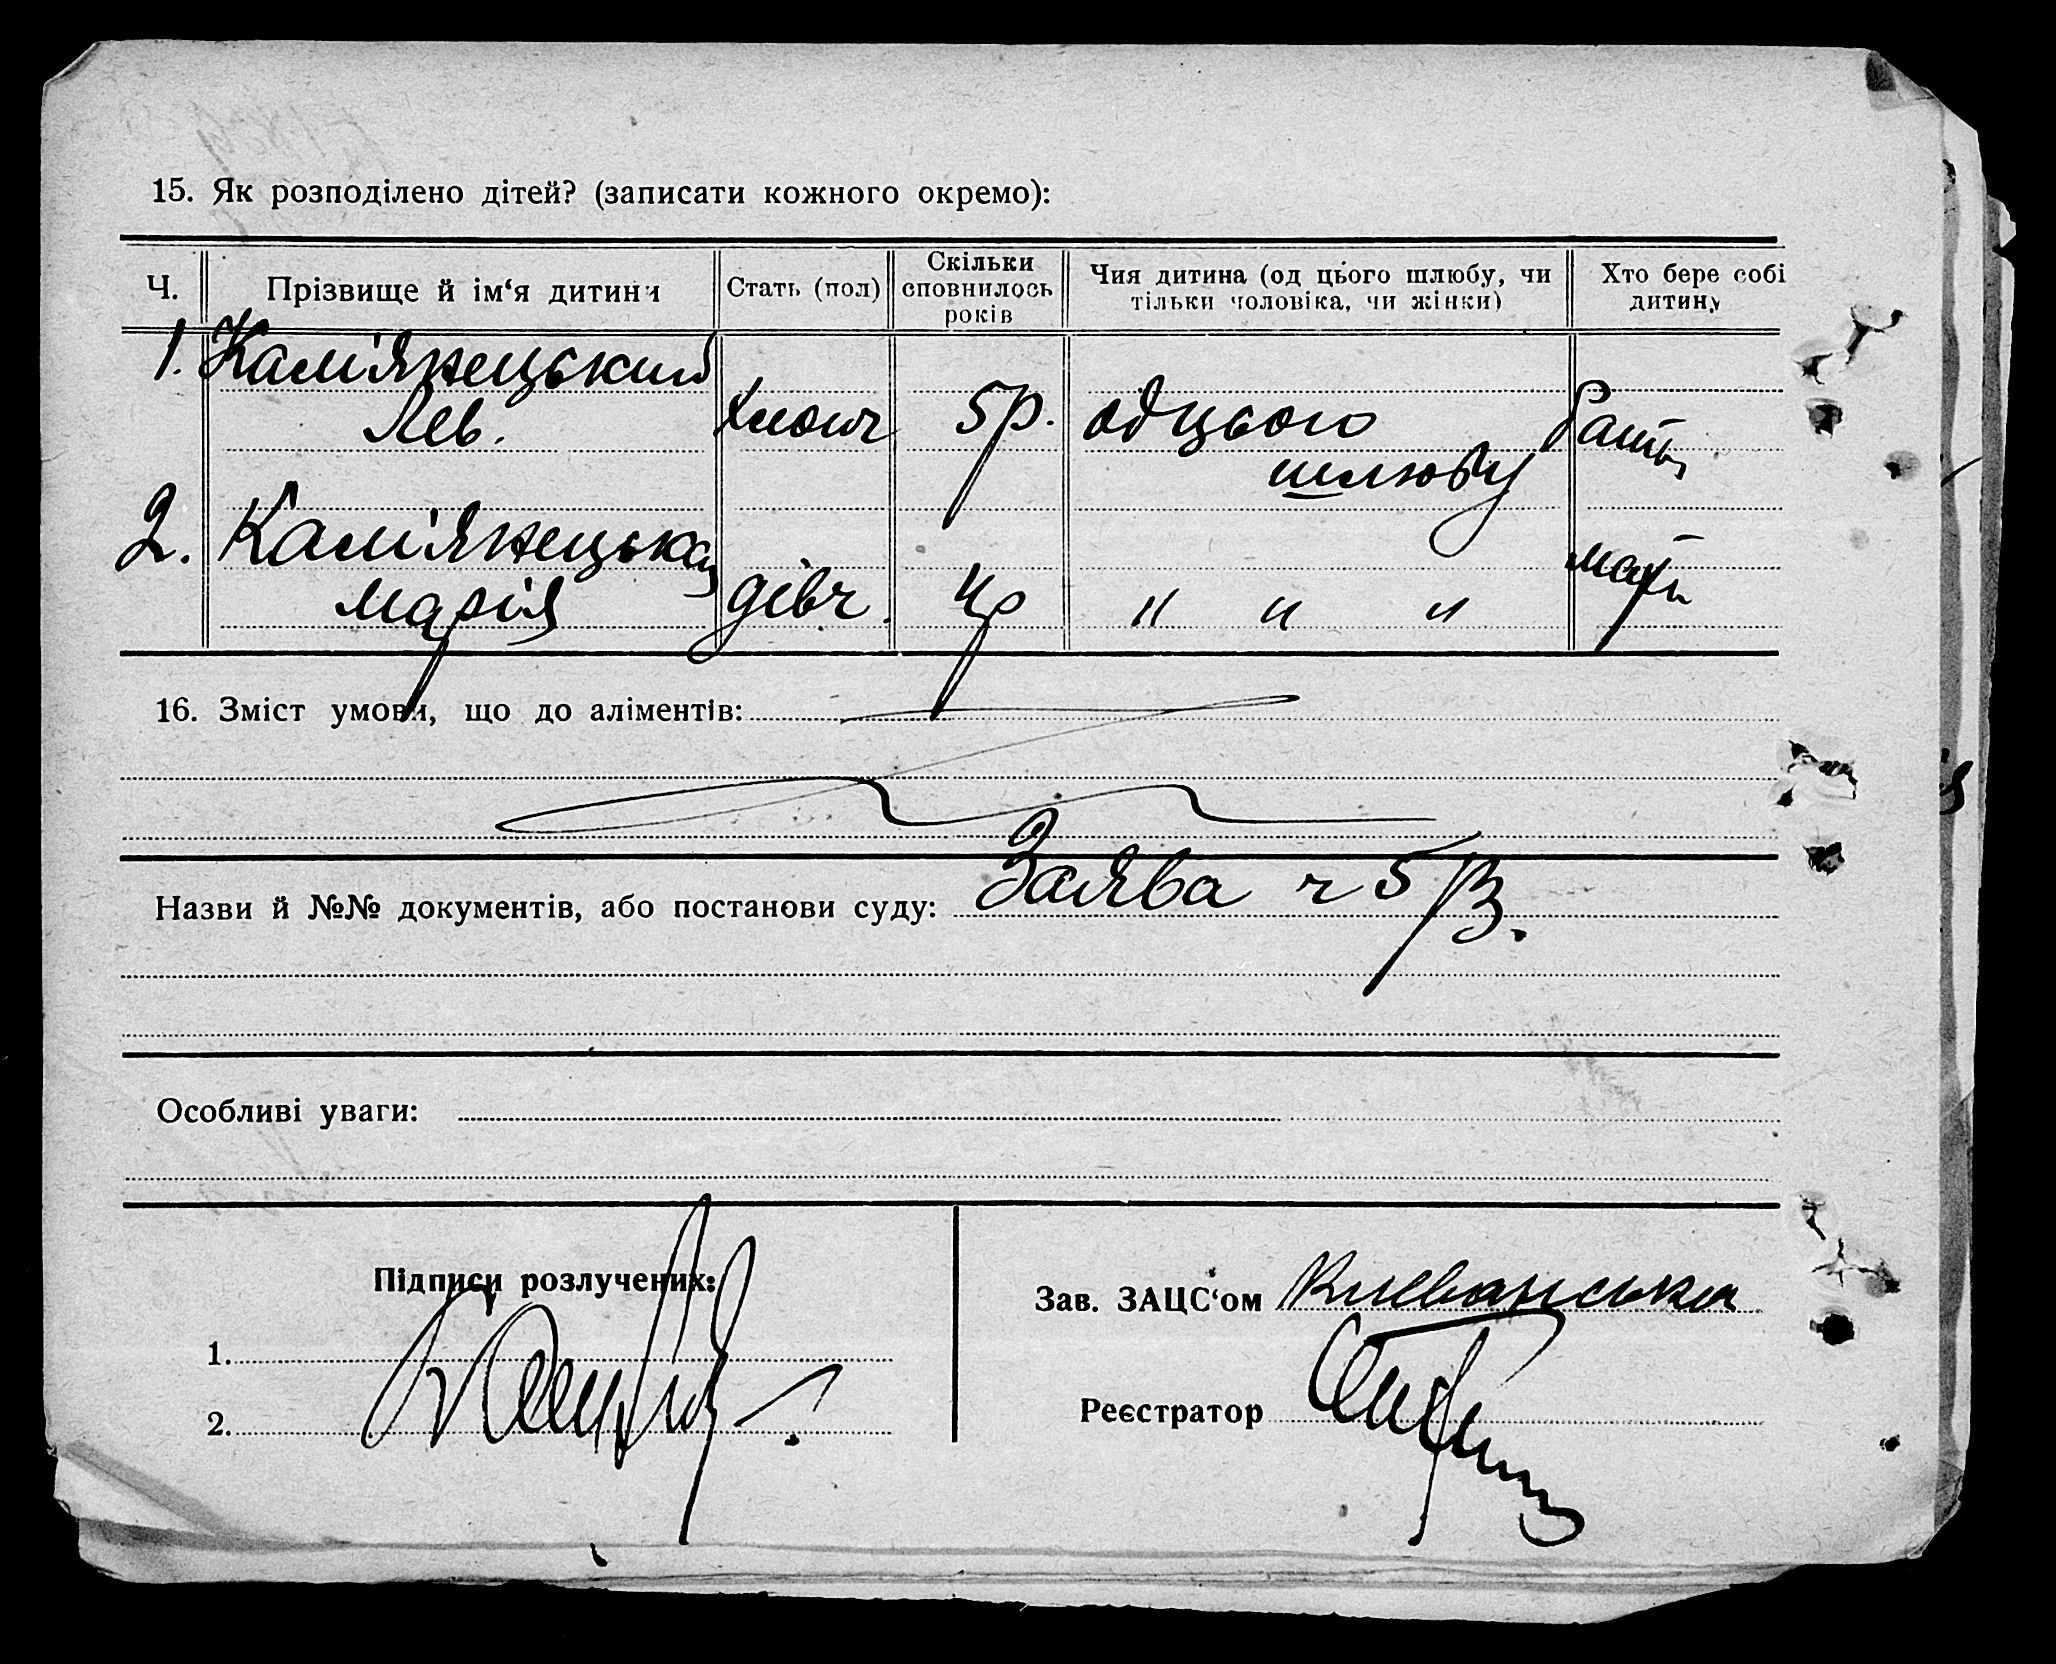 15. Як розподілено дітей? (записати кожного окремо):
Ч. Прізвище й ім‘я дитини Стать (пол) Скільки сповнилось років Чия дитина (од цього шлюбу, чи тільки чоловіка, чи жінки) Хто бере собі дитину
1. Кам'янецький
Лев. хлопч 5 р. од цього
шлюбу
2. Кам'янецька мать
Марія дівч. 4 р " " "
16. Зміст умови, що до аліментів:
Назви й №№ документів, або постанови суду: Заява ч 5/В.
Особливі уваги:
Підписи розлучених:
Зав. ЗАЦС‘ом
1.
Реєстратор
2.